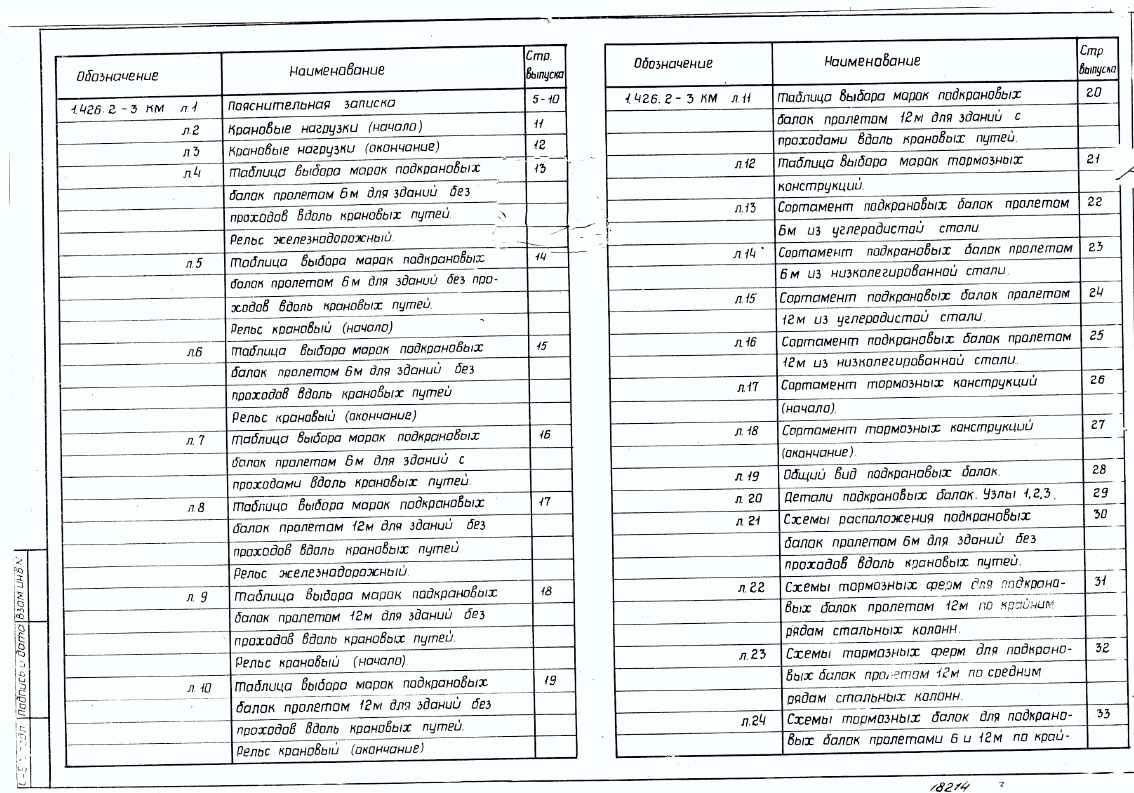 Обозначение Наименование Стр. выпуска
1.426.2-3 КМ л.1 Пояснительная записка 5-10
л.2 Крановые нагрузки (начало) 11
л.3 Крановые нагрузки (окончание) 12
л.4 Таблица выбора марок подкрановых 13
балок пролетом 6м для зданий без
проходов вдоль крановых путей.
Рельс железнодорожный.
л.5 Таблица выбора марок подкрановых 14
балок пролетом 6м для зданий без про-
ходов вдоль крановых путей.
Рельс крановый (начало)
л.6 Таблица выбора марок подкрановых 15
балок пролетом 6м для зданий без
проходов вдоль крановых путей
Рельс крановый (окончание)
л.7 Таблица выбора марок подкрановых 16
балок пролетом 6м для зданий с
проходами вдоль крановых путей.
л.8 Таблица выбора марок подкрановых 17
балок пролетом 12м для зданий без
проходов вдоль крановых путей
Рельс железнодорожный.
л.9 Таблица выбора марок подкрановых 18
балок пролетом 12м для зданий без
проходов вдоль крановых путей.
Рельс крановый (начало).
л.10 Таблица выбора марок подкрановых 19
балок пролетом 12м для зданий без
проходов вдоль крановых путей.
Рельс крановый (окончание)
Обозначение Наименование Стр выпуска
1.426.2-3 КМ л.11 Таблица выбора марок подкрановых 20
балок пролетом 12м для зданий с
проходами вдоль крановых путей.
л.12 Таблица выбора марок тормозных 21
конструкций.
л.13 Сортамент подкрановых балок пролетом 22
6м из углеродистой стали.
л.14 Сортамент подкрановых балок пролетом 23
6м из низколегированной стали.
л.15 Сортамент подкрановых балок пролетом 24
12м из углеродистой стали.
л.16 Сортамент подкрановых балок пролетом 25
12м из низколегированной стали.
л.17 Сортамент тормозных конструкций 26
(начало).
л.18 Сортамент тормозных конструкций 27
(окончание).
л.19 Общий вид подкрановых балок. 28
л.20 Детали подкрановых балок. Узлы 1,2,3. 29
л.21 Схемы расположения подкрановых 30
балок пролетом 6м для зданий без
проходов вдоль крановых путей.
л.22 Схемы тормозных ферм для подкрано- 31
вых балок пролетом 12м по крайним
рядам стальных колонн.
л.23 Схемы тормозных ферм для подкрано- 32
вых балок пролетом 12м по средним
рядам стальных колонн.
л.24 Схемы тормозных балок для подкрано- 33
вых балок пролетами 6 и 12м по край-
Взам инв N
Подпись и дата
18214 3